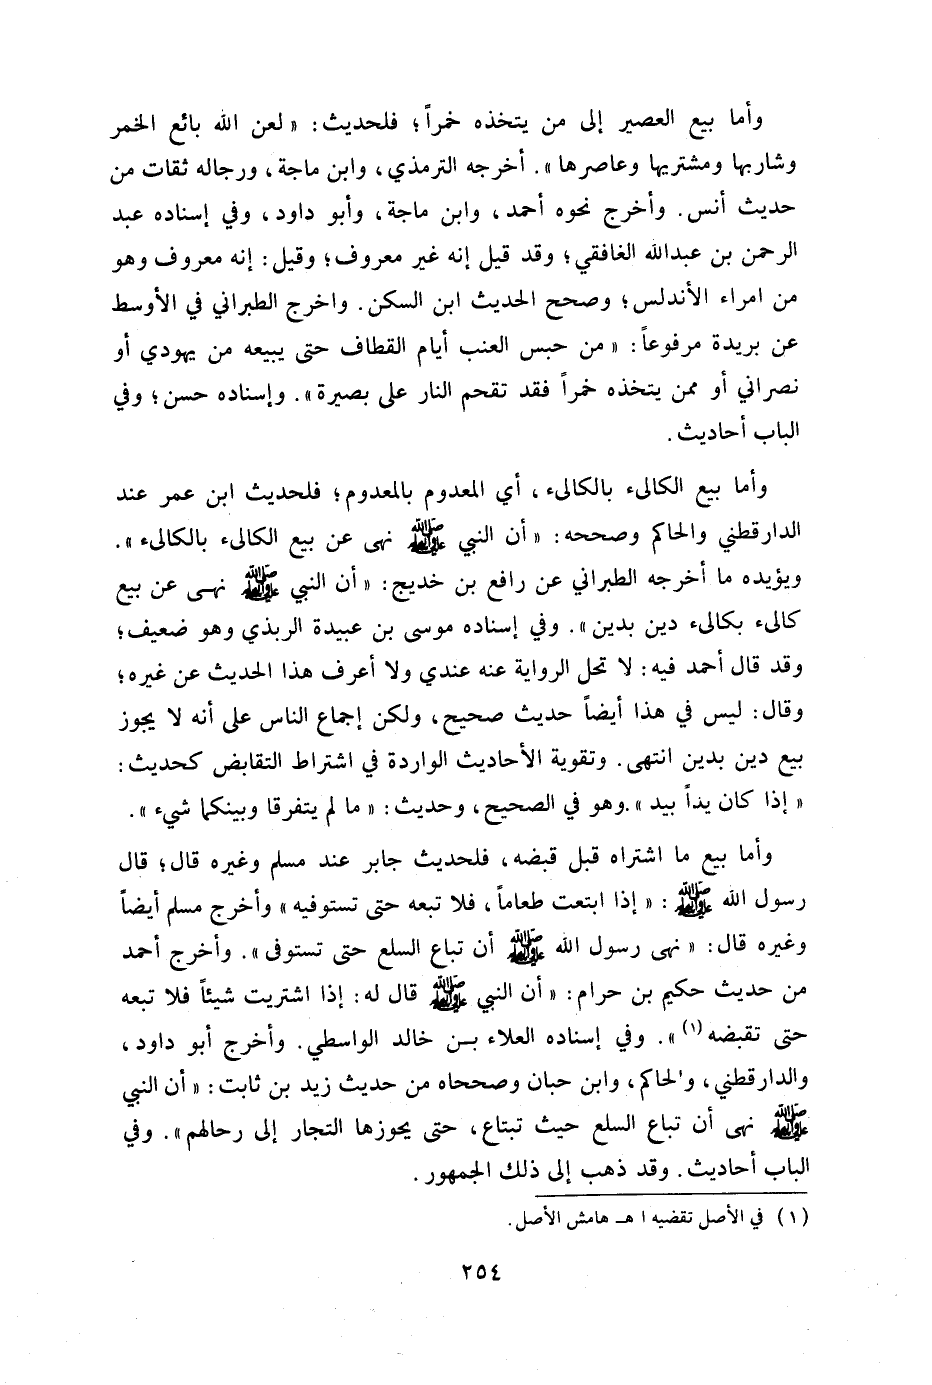 وأما بيع العصير إلى من يتخذه خمراً؛ فلحديث: « لعن الله بائع الخمر
وشاربها ومشتريها وعاصرها ». أخرجه الترمذي، وابن ماجة، ورجاله ثقات من
حديث أنس. وأخرج نحوه أحمد، وابن ماجة، وأبو داود، وفي إسناده عبد
الرحمن بن عبدالله الغافقي؛ وقد قيل إنه غير معروف؛ وقيل: إنه معروف وهو
من امراء الأندلس؛ وصحح الحديث ابن السكن. واخرج الطبراني في الأوسط
عن بريدة مرفوعاً: « من حبس العنب أيام القطاف حتى يبيعه من يهودي أو
نصراني أو ممن يتخذه خمراً فقد تقحم النار على بصيرة ». وإسناده حسن؛ وفي
الباب أحاديث.
وأما بيع الكالىء بالكالىء، أي المعدوم بالمعدوم؛ فلحديث ابن عمر عند
الدارقطني والحاكم وصححه: « أن النبي ﷺ نهى عن بيع الكالىء بالكالىء ».
ويؤيده ما أخرجه الطبراني عن رافع بن خديج: « أن النبي ﷺ نهى عن بيع
كالىء بكالىء دين بدين ». وفي إسناده موسى بن عبيدة الربذي وهو ضعيف؛
وقد قال أحمد فيه: لا تحل الرواية عنه عندي ولا أعرف هذا الحديث عن غيره؛
وقال: ليس في هذا أيضاً حديث صحيح، ولكن إجماع الناس على أنه لا يجوز
بيع دين بدين انتهى. وتقوية الأحاديث الواردة في اشتراط التقابض كحديث:
« إذا كان يداً بيد ».وهو في الصحيح، وحديث: « ما لم يتفرقا وبينكما شيء ».
وأما بيع ما اشتراه قبل قبضه، فلحديث جابر عند مسلم وغيره قال؛ قال
رسول الله ﷺ: « إذا ابتعت طعاماً، فلا تبعه حتى تستوفيه » وأخرج مسلم أيضاً
وغيره قال: « نهى رسول الله ﷺ أن تباع السلع حتى تستوفى ». وأخرج أحمد
من حديث حكيم بن حرام: « أن النبي ﷺ قال له: إذا اشتريت شيئاً فلا تبعه
حتى تقبضه(١) ». وفي إسناده العلاء بن خالد الواسطي. وأخرج أبو داود،
والدارقطني، والحاكم، وابن حبان وصححاه من حديث زيد بن ثابت: « أن النبي
ﷺ نهى أن تباع السلع حيث تبتاع، حتى يحوزها التجار إلى رحالهم ». وفي
الباب أحاديث. وقد ذهب إلى ذلك الجمهور.
(١) في الأصل تقضيه ا هـ هامش الأصل.
٢٥٤